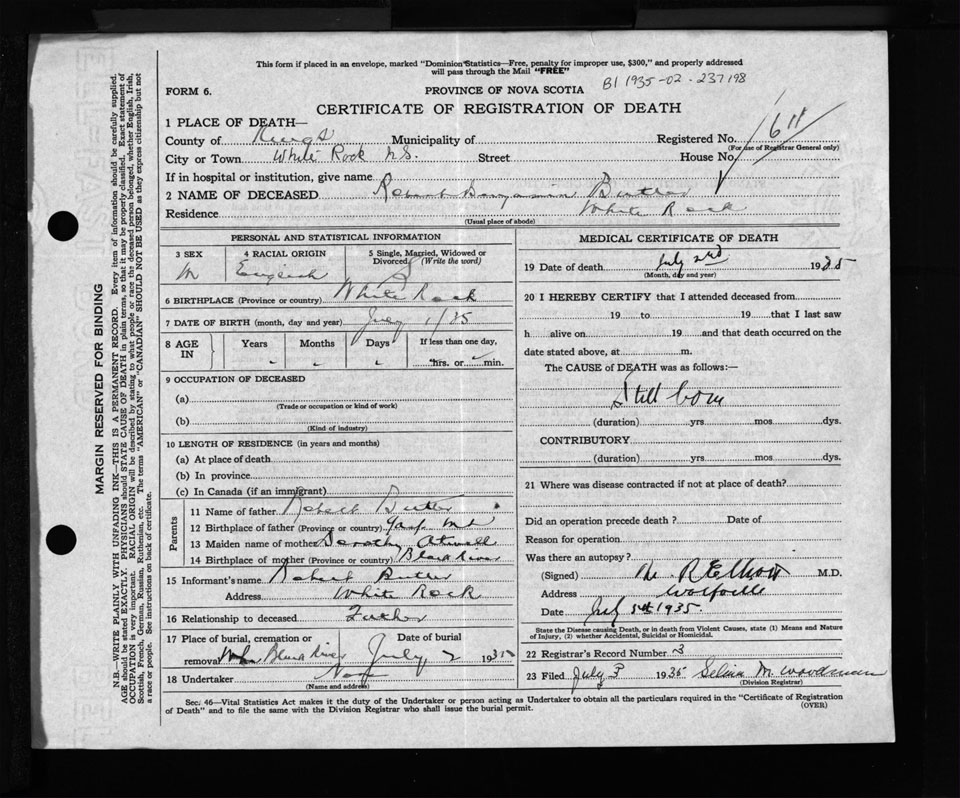 This form if placed in an envelope, marked "Dominion Statistics—Free, penalty for improper use, $300," and properly addressed
will pass through the Mail "FREE"
B1 1935-02-237198
FORM 6.
PROVINCE OF NOVA SCOTIA
CERTIFICATE OF REGISTRATION OF DEATH
1 PLACE OF DEATH—
County of Kings Municipality of Registered No. 1611
(For use of Registrar General only)
City or Town White Rock N.S. Street House No.
If in hospital or institution, give name
2 NAME OF DECEASED Robert Benjamin Butler
Residence White Rock
(Usual place of abode)
PERSONAL AND STATISTICAL INFORMATION
3 SEX M
4 RACIAL ORIGIN English
5 Single, Married, Widowed or Divorced (Write the word) S
6 BIRTHPLACE (Province or country) White Rock
7 DATE OF BIRTH (month, day and year) July 1/35
8 AGE IN Years Months Days If less than one day, hrs. or min.
9 OCCUPATION OF DECEASED
(a)
(Trade or occupation or kind of work)
(b)
(Kind of industry)
10 LENGTH OF RESIDENCE (in years and months)
(a) At place of death
(b) In province
(c) In Canada (if an immigrant)
Parents
11 Name of father Robert Butler
12 Birthplace of father (Province or country) Gasp. Mt
13 Maiden name of mother Dorothy Atwell
14 Birthplace of mother (Province or country) Black River
15 Informant's name Robert Butler
Address White Rock
16 Relationship to deceased Father
17 Place of burial, cremation or removal Black River Date of burial July 2 1935
18 Undertaker None
(Name and address)
MEDICAL CERTIFICATE OF DEATH
19 Date of death July 2nd 1935
(Month, day and year)
20 I HEREBY CERTIFY that I attended deceased from
19 to 19 that I last saw
h alive on 19 and that death occurred on the
date stated above, at m.
The CAUSE of DEATH was as follows:—
Still born
(duration) yrs mos dys.
CONTRIBUTORY
(duration) yrs mos dys.
21 Where was disease contracted if not at place of death?
Did an operation precede death? Date of
Reason for operation
Was there an autopsy?
(Signed) M.D.
Address Wolfville
Date July 1935.
State the Disease causing Death, or in death from Violent Causes, state (1) Means and Nature
of Injury, (2) whether Accidental, Suicidal or Homicidal.
22 Registrar's Record Number 3
23 Filed July 3 1935 Selina M. Woodman
(Division Registrar)
Sec. 46—Vital Statistics Act makes it the duty of the Undertaker or person acting as Undertaker to obtain all the particulars required in the "Certificate of Registration
of Death" and to file the same with the Division Registrar who shall issue the burial permit.
(OVER)
MARGIN RESERVED FOR BINDING
N.B.—WRITE PLAINLY WITH UNFADING INK—THIS IS A PERMANENT RECORD. Every item of information should be carefully supplied.
AGE should be stated EXACTLY. PHYSICIANS should STATE CAUSE OF DEATH in plain terms, so that it may be properly classified. Exact statement of
OCCUPATION is very important. RACIAL ORIGIN will be described by stating to what people or race the deceased person belonged, whether English, Irish,
Scottish, French, German, Russian, Ruthenian, etc. The terms "AMERICAN" or "CANADIAN" SHOULD NOT BE USED as they express citizenship but not
a race or people. See instructions on back of certificate.